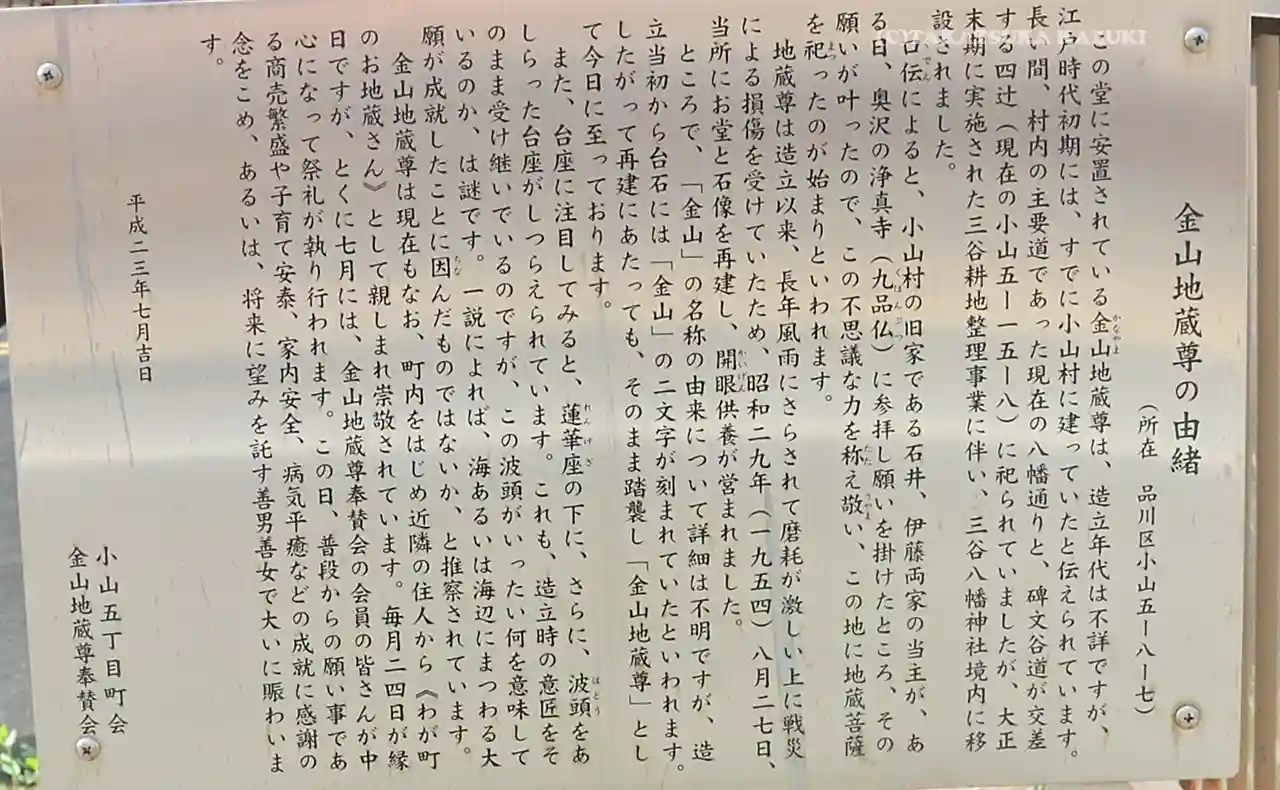 金山地蔵尊の由緒
（所在　品川区小山五ー八ー七）
この堂に安置されている金山地蔵尊は、造立年代は不詳ですが、
江戸時代初期には、すでに小山村に建っていたと伝えられています。
長い間、村内の主要道であった現在の八幡通りと、碑文谷道が交差
する四辻（現在の小山五ー一五ー八）に祀られていましたが、大正
末期に実施された三谷耕地整理事業に伴い、三谷八幡神社境内に移
設されました。
口伝によると、小山村の旧家である石井、伊藤両家の当主が、あ
る日、奥沢の浄真寺（九品仏）に参拝し願いを掛けたところ、その
願いが叶ったので、この不思議な力を称え敬い、この地に地蔵菩薩
を祀ったのが始まりといわれます。
地蔵尊は造立以来、長年風雨にさらされて磨耗が激しい上に戦災
による損傷を受けていたため、昭和二九年（一九五四）八月二七日、
当所にお堂と石像を再建し、開眼供養が営まれました。
ところで、「金山」の名称の由来について詳細は不明ですが、造
立当初から台石には「金山」の二文字が刻まれていたといわれます。
したがって再建にあたっても、そのまま踏襲し「金山地蔵尊」とし
て今日に至っております。
また、台座に注目してみると、蓮華座の下に、さらに、波頭をあ
しらった台座がしつらえられています。これも、造立時の意匠をそ
のまま受け継いでいるのですが、この波頭がいったい何を意味して
いるのか、は謎です。一説によれば、海あるいは海辺にまつわる大
願が成就したことに因んだものではないか、と推察されています。
金山地蔵尊は現在もなお、町内をはじめ近隣の住人から《わが町
のお地蔵さん》として親しまれ崇敬されています。毎月二四日が縁
日ですが、とくに七月には、金山地蔵尊奉賛会の会員の皆さんが中
心になって祭礼が執り行われます。この日、普段からの願い事であ
る商売繁盛や子育て安泰、家内安全、病気平癒などの成就に感謝の
念をこめ、あるいは、将来に望みを託す善男善女で大いに賑わいま
す。
平成二三年七月吉日
小山五丁目町会
金山地蔵尊奉賛会
(C)TAKATSUKA KAZUKI